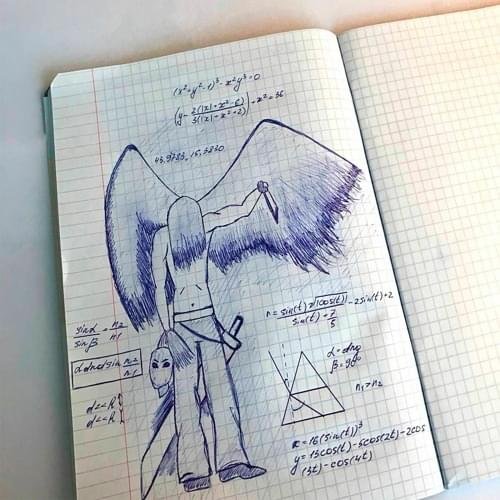 (x²+y²-1)³-x²y³=0
(y-2(|x|+x²-6)/3(|x|+x²+2))²+x²=36
43,9783, 15,3830
r=sin(t)√|cos(t)|/sin(t)+7/5-2sin(t)+2
sinα/sinβ=n2/n1
n2/n1
β=90°
n1>n2
x=16(sin(t))³
y=13cos(t)-5cos(2t)-2cos
(3t)-cos(4t)